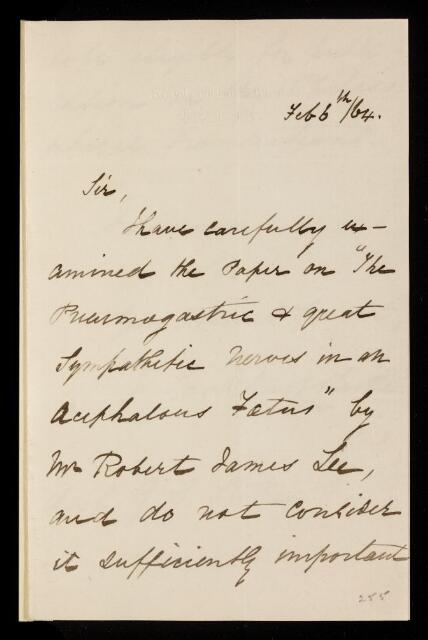 Feb 6th/64.
Sir,
I have carefully ex-
amined the Paper on "The
Pneumogastric & great
Sympathetic Nerves in an
Acephalous Fœtus" by
Mr Robert James Lee,
and do not consider
it sufficiently important
255